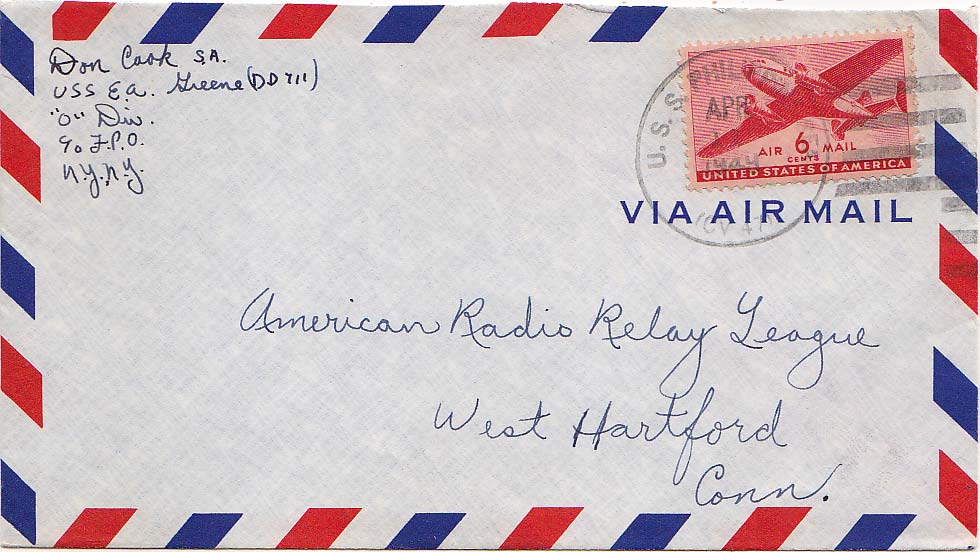 Don Cook S.A.
USS E.A. Greene (DD 711)
"O" Div.
c/o F.P.O.
N.Y. N.Y.
U. S. S.
APR
(CV 47)
AIR 6 MAIL
CENTS
UNITED STATES OF AMERICA
VIA AIR MAIL
American Radio Relay League
West Hartford
Conn.